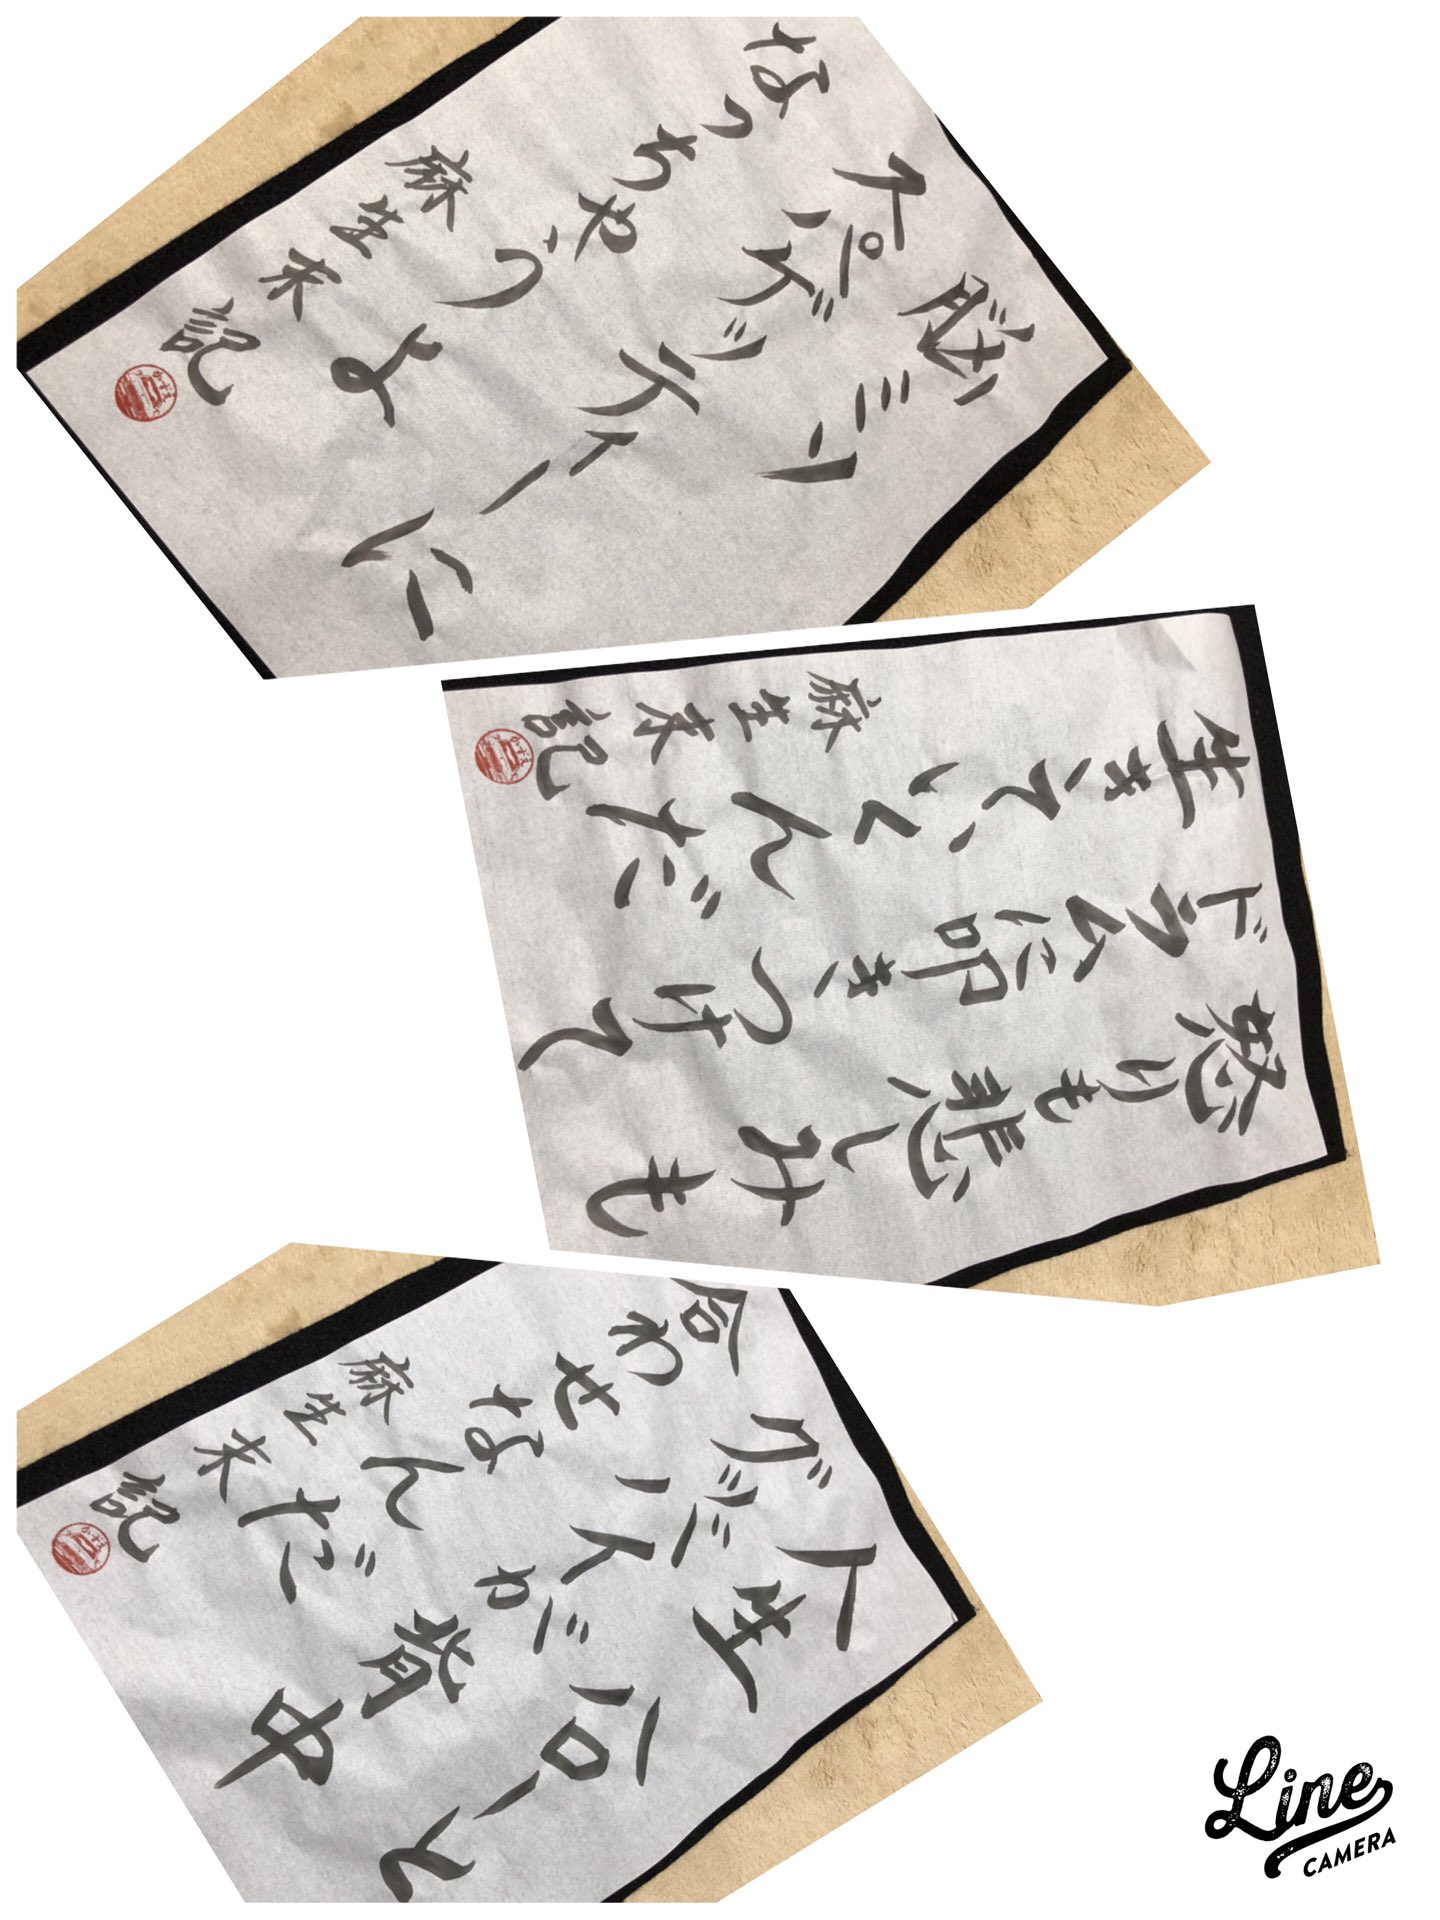 脳ミソ
スパゲッティーに
なっちゃうよ
麻生末記
怒りも悲しみも
ドラムに叩きつけて
生きていくんだ
麻生末記
人生ハローと
グッバイが背中
合わせなんだ
麻生末記
Line
CAMERA